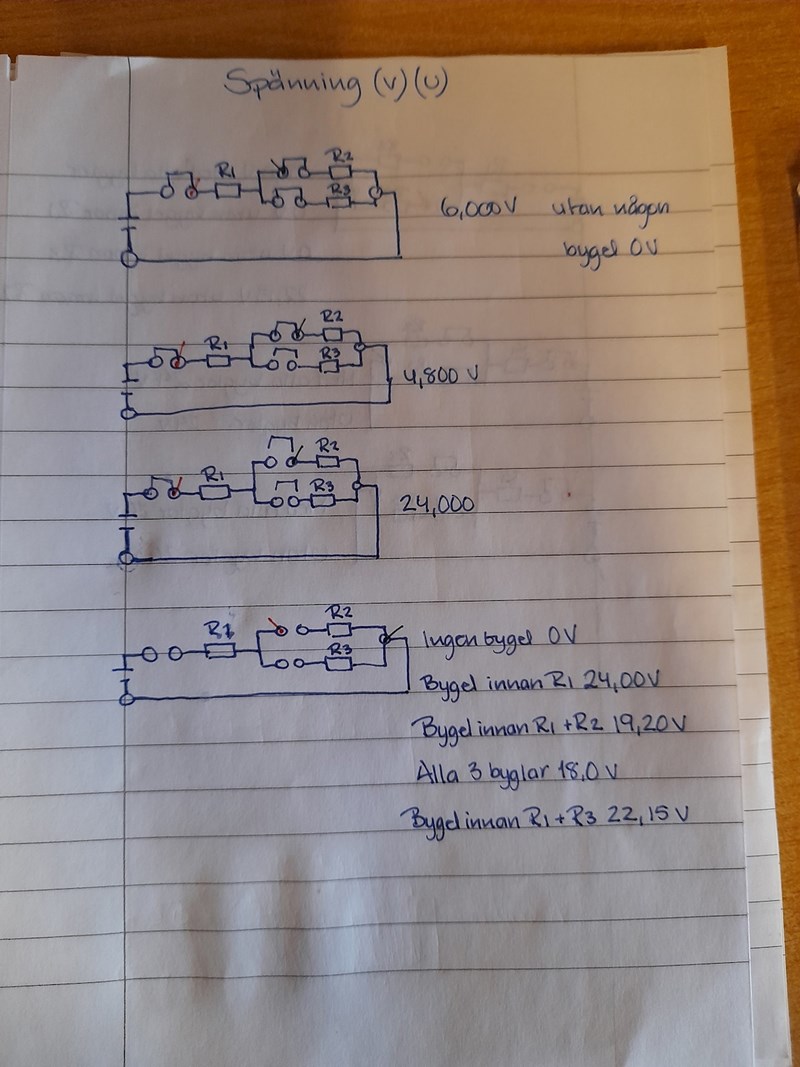 Spänning (V) (U)
R1 R2
R3
6,000V utan någon
bygel 0V
R1 R2
R3
4,800 V
R1 R2
R3
24,000
R1 R2
R3
Ingen bygel 0V
Bygel innan R1 24,00V
Bygel innan R1 + R2 19,20V
Alla 3 byglar 18,0 V
Bygel innan R1 + R3 22,15 V